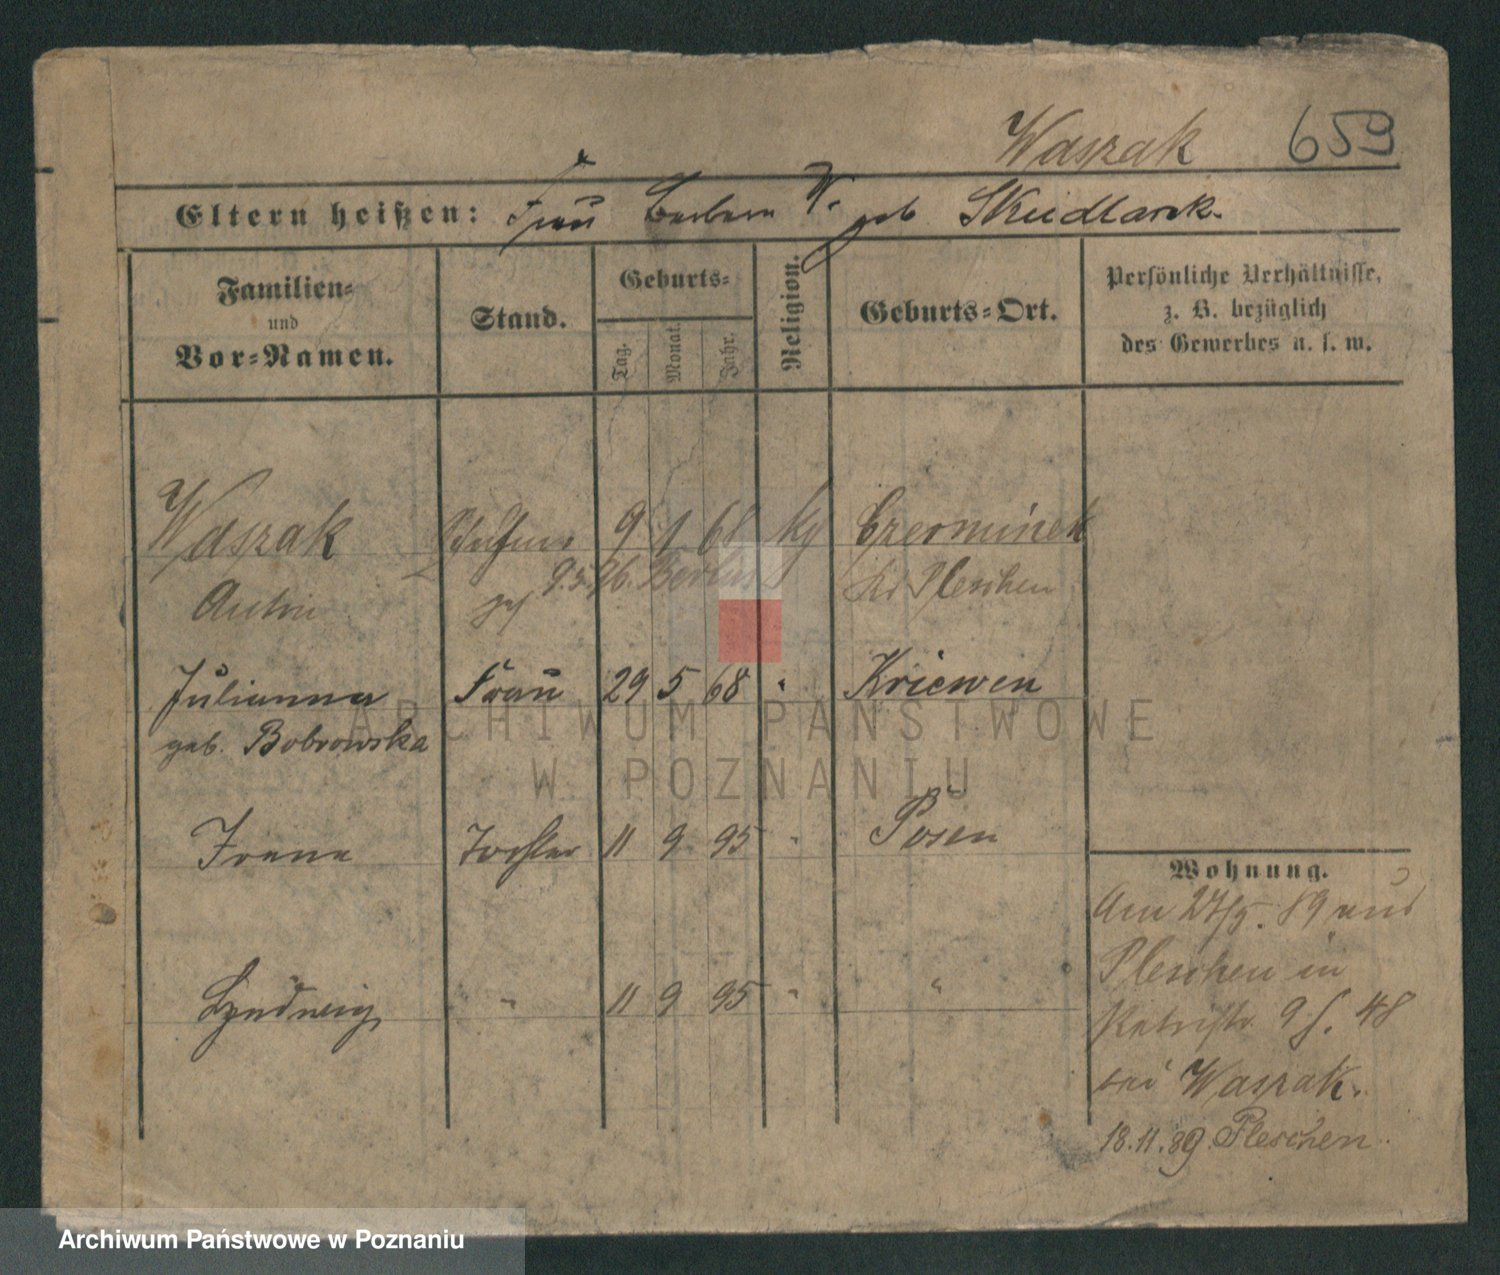 Waszak 659
Eltern heißen: Frau Barbara W. geb Skudlarek.
Familien=
und
Vor=Namen.
Stand.
Geburts=
Tag.
Monat.
Jahr.
Religion.
Geburts=Ort.
Persönliche Verhältnisse,
z. B. bezüglich
des Gewerbes u. s. w.
Waszak 9 1 68 Czerminek
9.5.96. Berlin
Pleschen
Julianna Frau 29 5 68 Kriewen
geb. Bobrowska
Irene Tochter 11 9 95 " Posen
Ludwig " 11 9 95 " "
Wohnung.
Am 27/5. 89 aus
Pleschen in
9 48
bei Waszak.
18.11.89. Pleschen.
ARCHIWUM PAŃSTWOWE
W POZNANIU
Archiwum Państwowe w Poznaniu